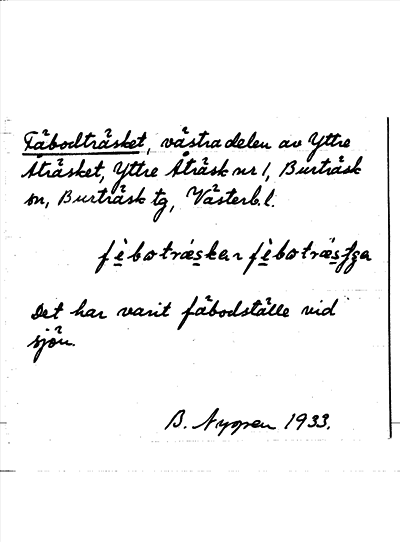 Fäbodträsket, västra delen av Yttre
Åträsket, Yttre Åträsk nr 1, Burträsk
sn, Burträsk tg, Västerb.l.
fèbotræ̀skar fèbotræ̀sʃga
Det har varit fäbodställe vid
sjön.
B. Nygren 1933.